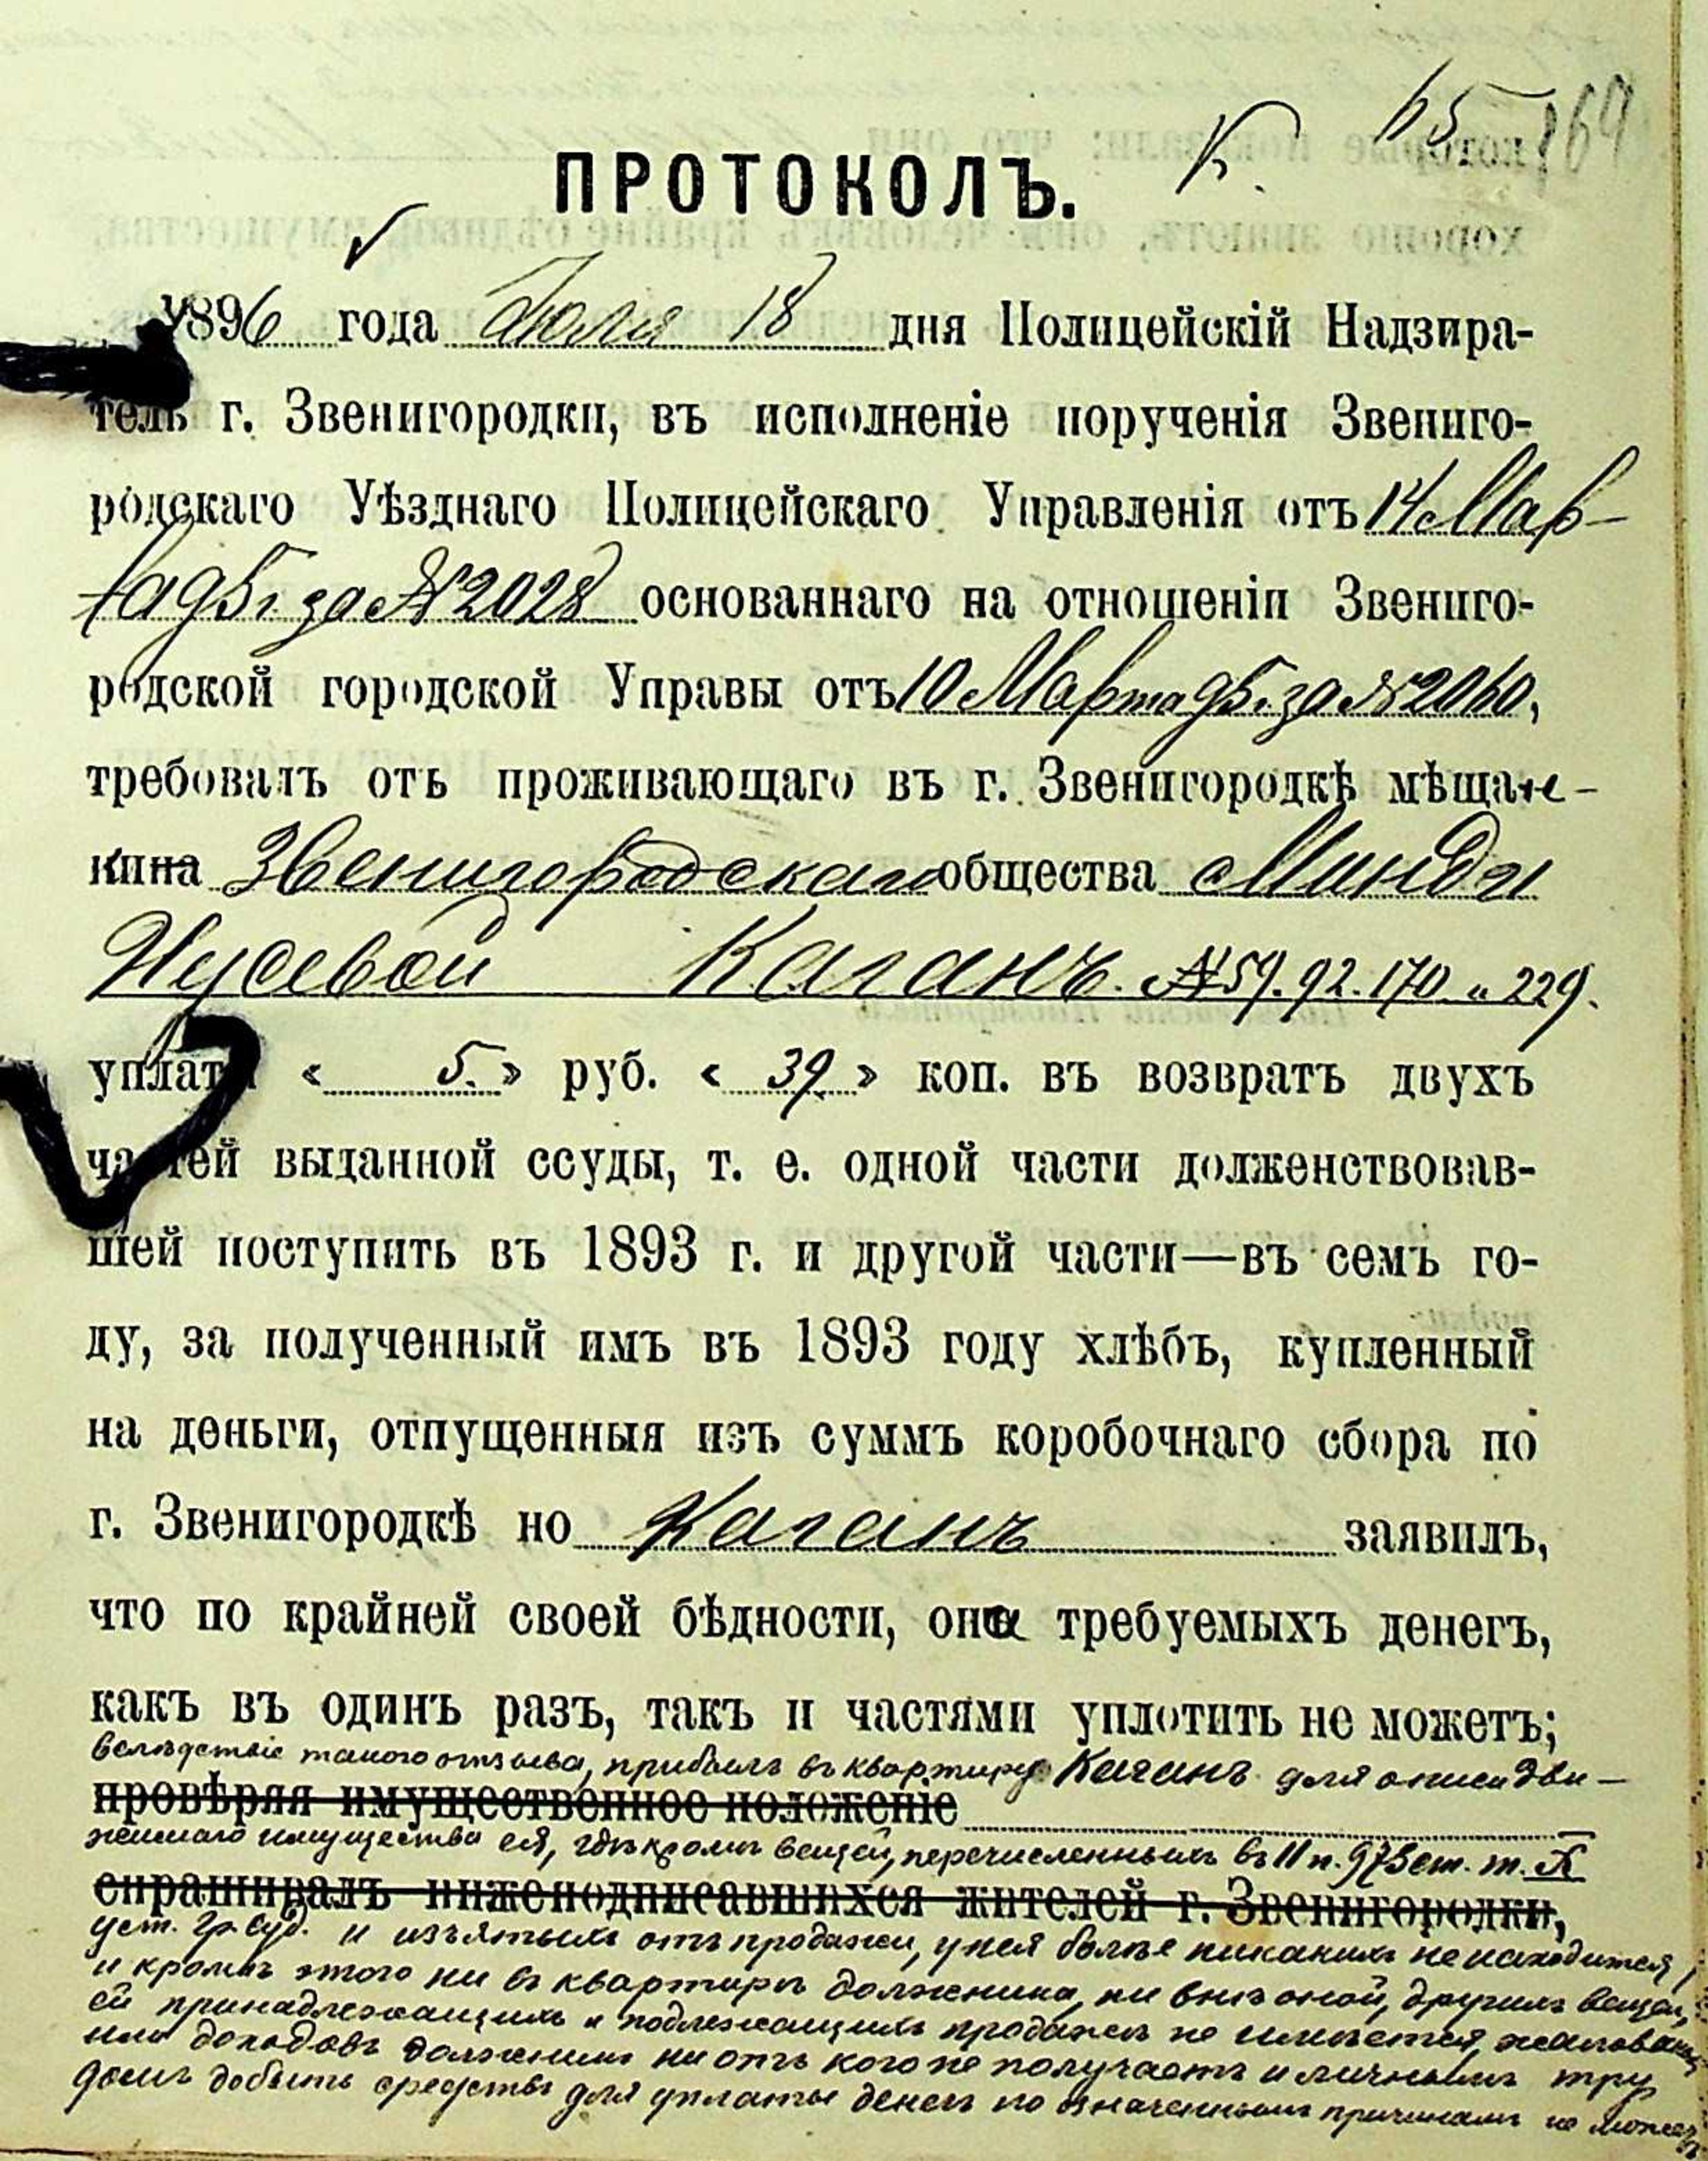 К. 65 169
ПРОТОКОЛЪ.
1896 года Іюля 18 дня Полицейскій Надзира-
тель г. Звенигородки, въ исполненіе порученія Звениго-
родскаго Уѣзднаго Полицейскаго Управленія отъ 14 Мар-
та 95 г. за № 2028 основаннаго на отношеніи Звениго-
родской городской Управы отъ 10 Марта 95 г. за № 2060,
требовалъ отъ проживающаго въ г. Звенигородкѣ мѣщан-
кина Звенигородскаго общества Минды
Нусевой Каганъ. № 59. 92. 170 и 229.
уплаты « 5. » руб. « 39 » коп. въ возвратъ двухъ
частей выданной ссуды, т. е. одной части долженствовав-
шей поступить въ 1893 г. и другой части—въ семъ го-
ду, за полученный имъ въ 1893 году хлѣбъ, купленный
на деньги, отпущенныя изъ суммъ коробочнаго сбора по
г. Звенигородкѣ но Каганъ заявилъ,
что по крайней своей бѣдности, она требуемыхъ денегъ,
какъ въ одинъ разъ, такъ и частями уплотить не можетъ;
вслѣдствіе такого отзыва, прибылъ въ квартиру Каганъ для описи дви-
провѣряя имущественное положеніе
жимаго имущества ея, гдѣ кромѣ вещей, перечисленныхъ въ 11 п. 973 ст. т. X
спрашивалъ нижеподписавшихся жителей г. Звенигородки,
уст. гр. суд. и изъятыхъ отъ продажи, у нея болѣе никакихъ не находится,
и кромѣ этого ни въ квартирѣ должника, ни внѣ оной, другихъ вещей,
ей принадлежащихъ и подлежащихъ продажѣ не имѣется, жалованья
или доходовъ должникъ ни отъ кого не получаетъ и личнымъ тру
домъ добыть средства для уплаты денегъ по означеннымъ причинамъ не можетъ